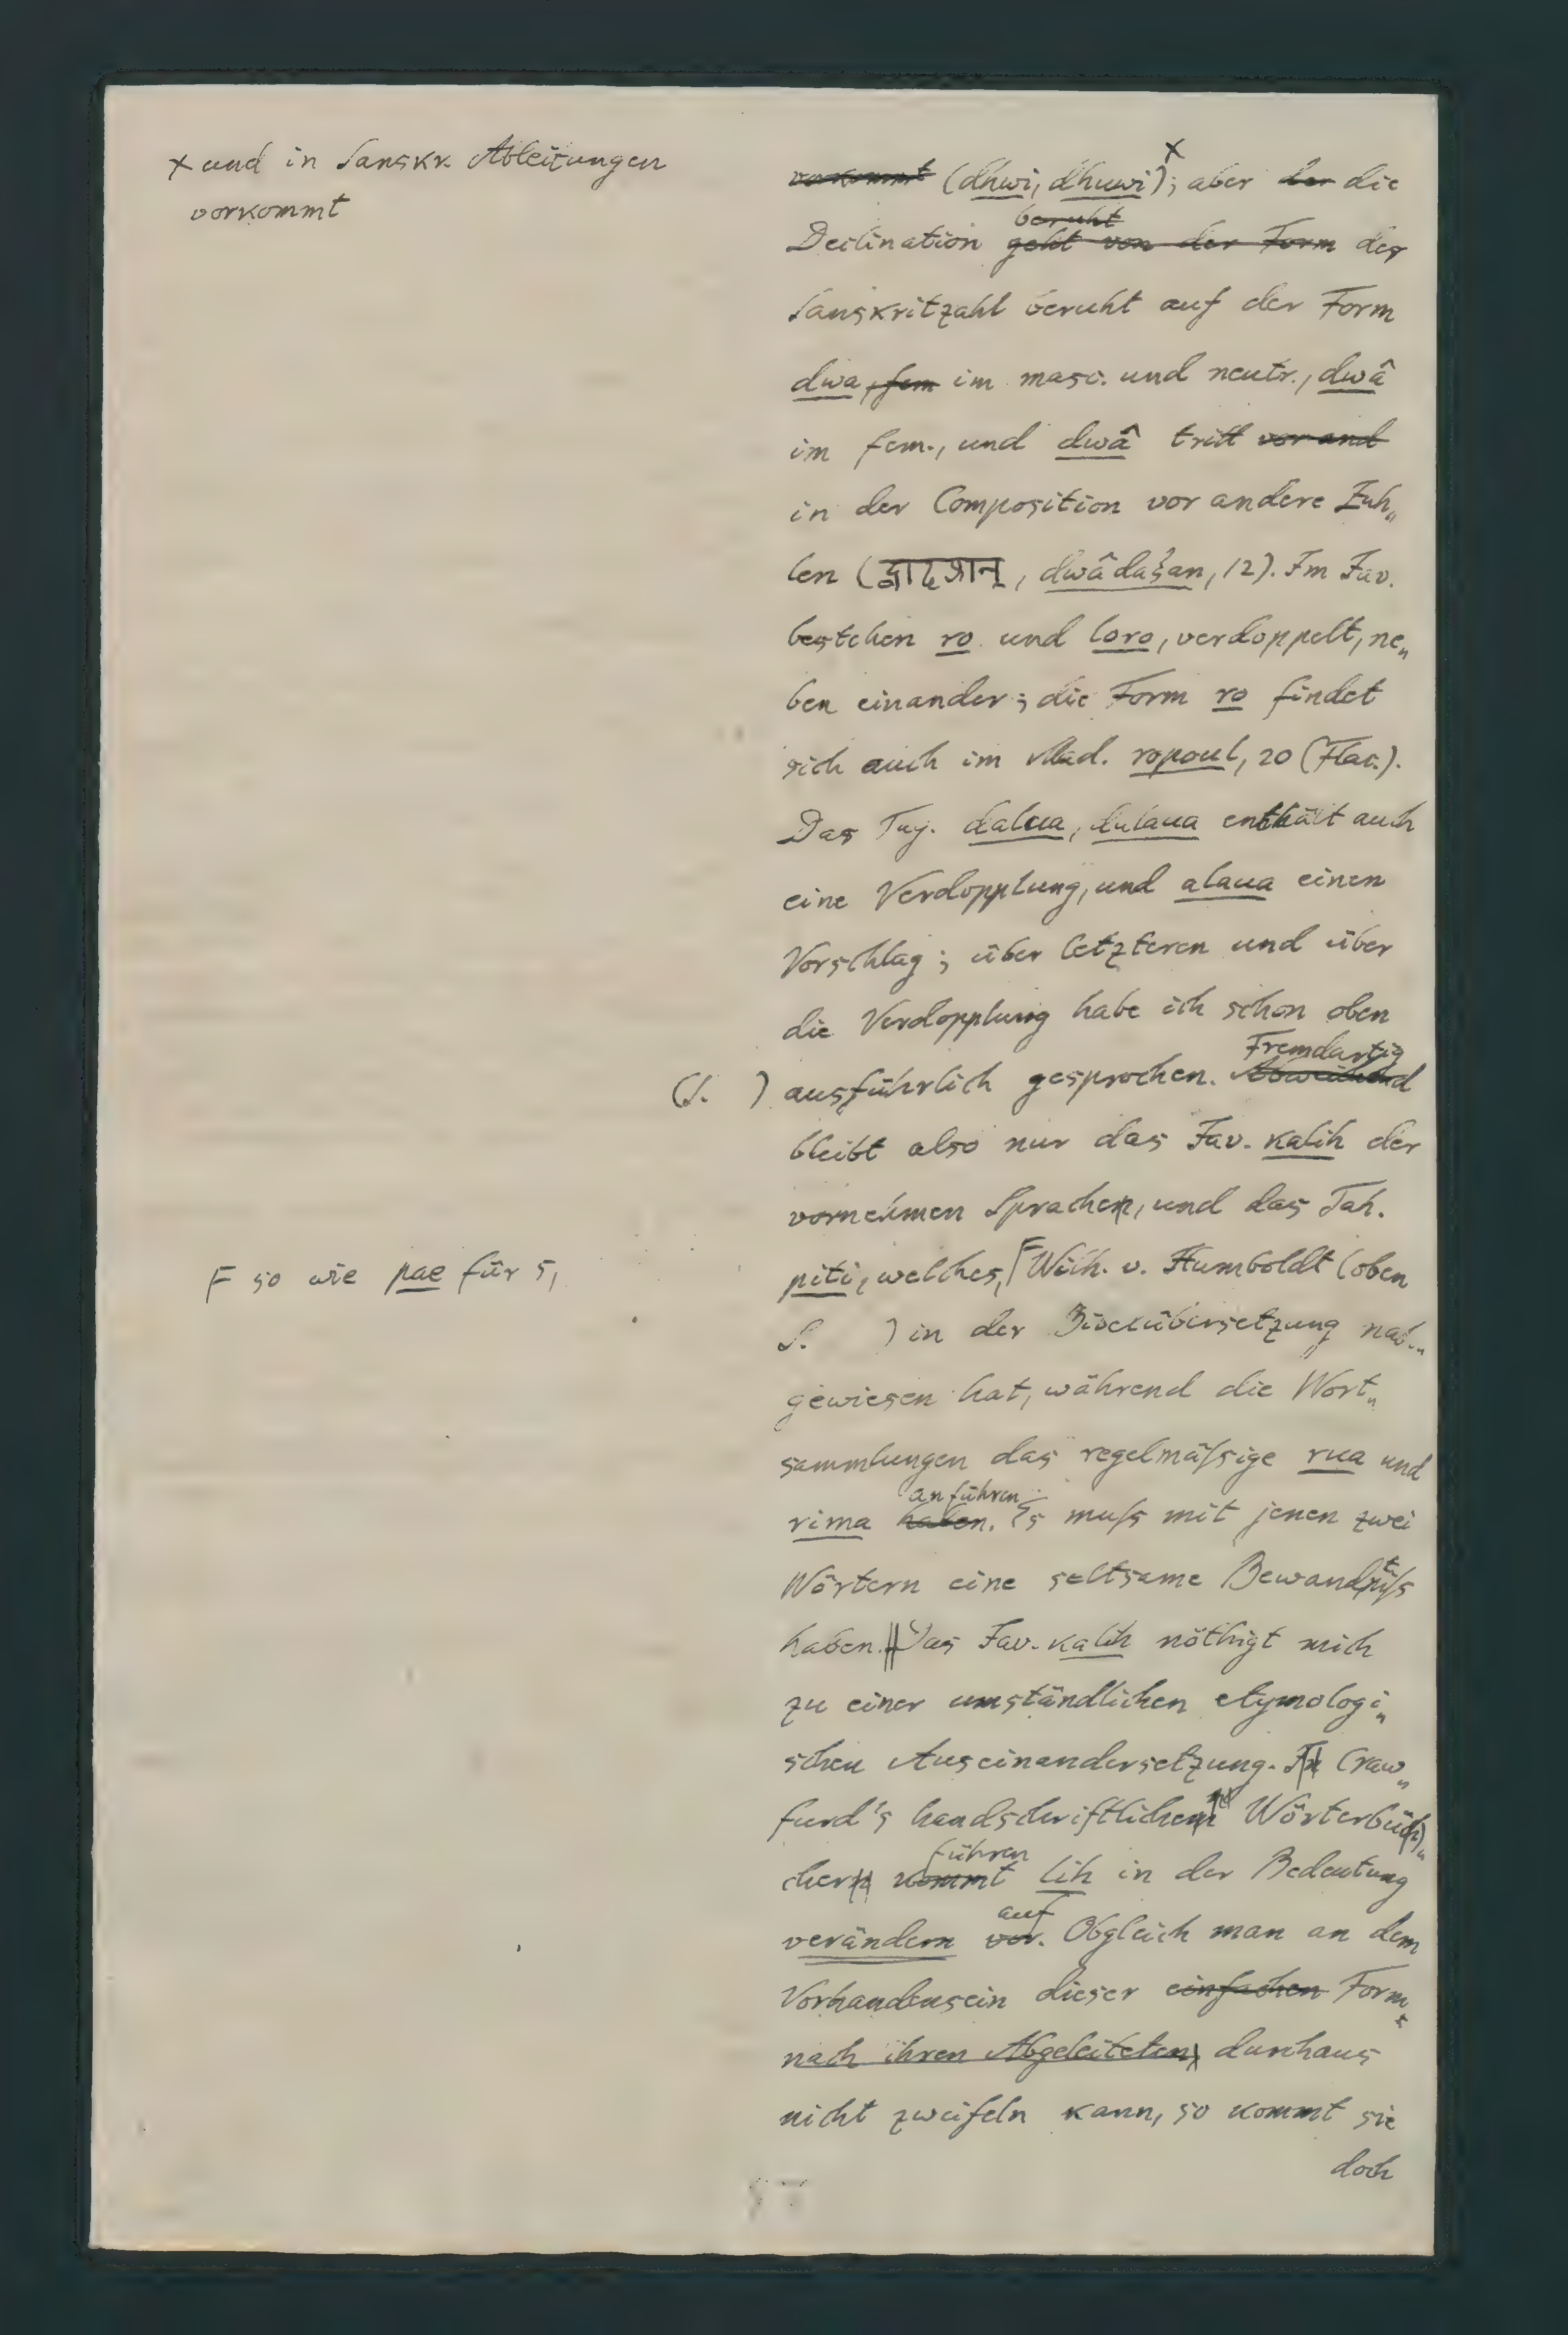 × und in Sanskr. Ableitungen
vorkommt
vorkommt (dhwi, dhuwi)×; aber der die
beruht
Declination geht von der Form der
Sanskritzahl beruht auf der Form
dwa, fem im masc. und neutr., dwâ
im fem., und dwâ tritt vor and
in der Composition vor andere Zah„
len (द्वादशन्, dwâdaśan, 12). Im Jav.
bestehen ro und loro, verdoppelt, ne„
ben einander; die Form ro findet
sich auch im Mad. ropoul, 20 (Flac.).
Das Tag. dalua, dalaua enthält auch
eine Verdopplung, und alaua einen
Vorschlag; über letzteren und über
die Verdopplung habe ich schon oben
Fremdartig
(S. ) ausführlich gesprochen. Abweichend
bleibt also nur das Jav. kalih der
vornehmen Sprachen, und das Tah.
F so wie pae für 5,
piti, welches, F Wilh. v. Humboldt (oben
S. ) in der Bibelübersetzung nach„
gewiesen hat, während die Wort„
sammlungen das regelmäſsige rua und
anführen
rima haben. Es muſs mit jenen zwei
Wörtern eine seltsame Bewandtniſs
haben. Das Jav. kalih nöthigt mich
zu einer umständlichen etymologi„
schen Auseinandersetzung. In Craw„
furd's handschriftlichen Wörterbü„
führen
chern kommt lih in der Bedeutung
auf
verändern vor. Obgleich man an dem
Vorhandensein dieser einfachen Form,
nach ihren Abgeleiteten, durchaus
nicht zweifeln kann, so kommt sie
doch